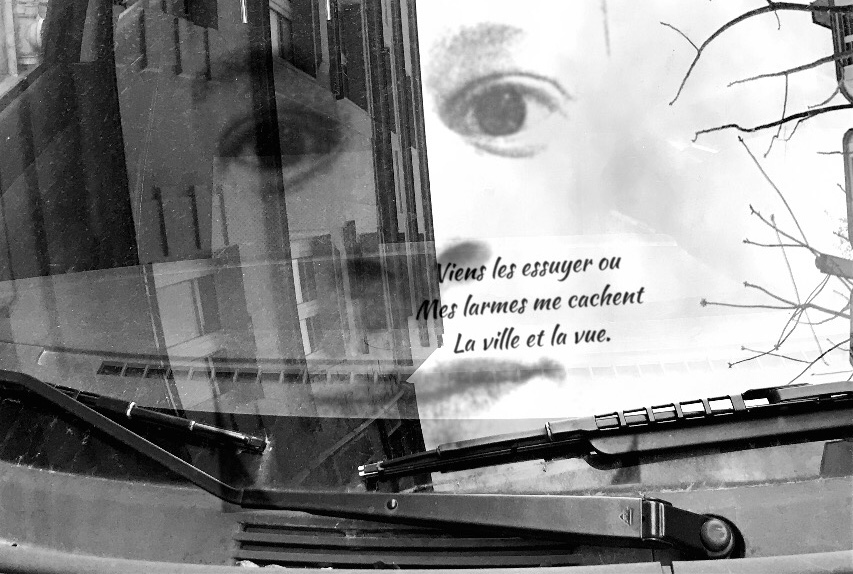 Viens les essuyer ou
Mes larmes me cachent
La ville et la vue.